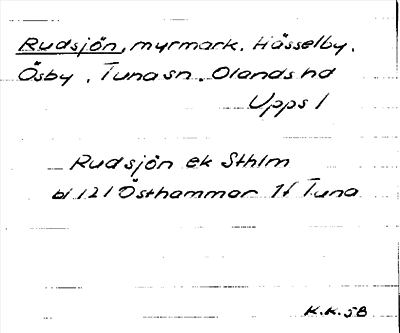 Rudsjön, myrmark, Hässelby,
Ösby, Tuna sn, Olands hd
Upps l
Rudsjön ek Sthlm
bl 121 Östhammar 1f Tuna
K.K. 58